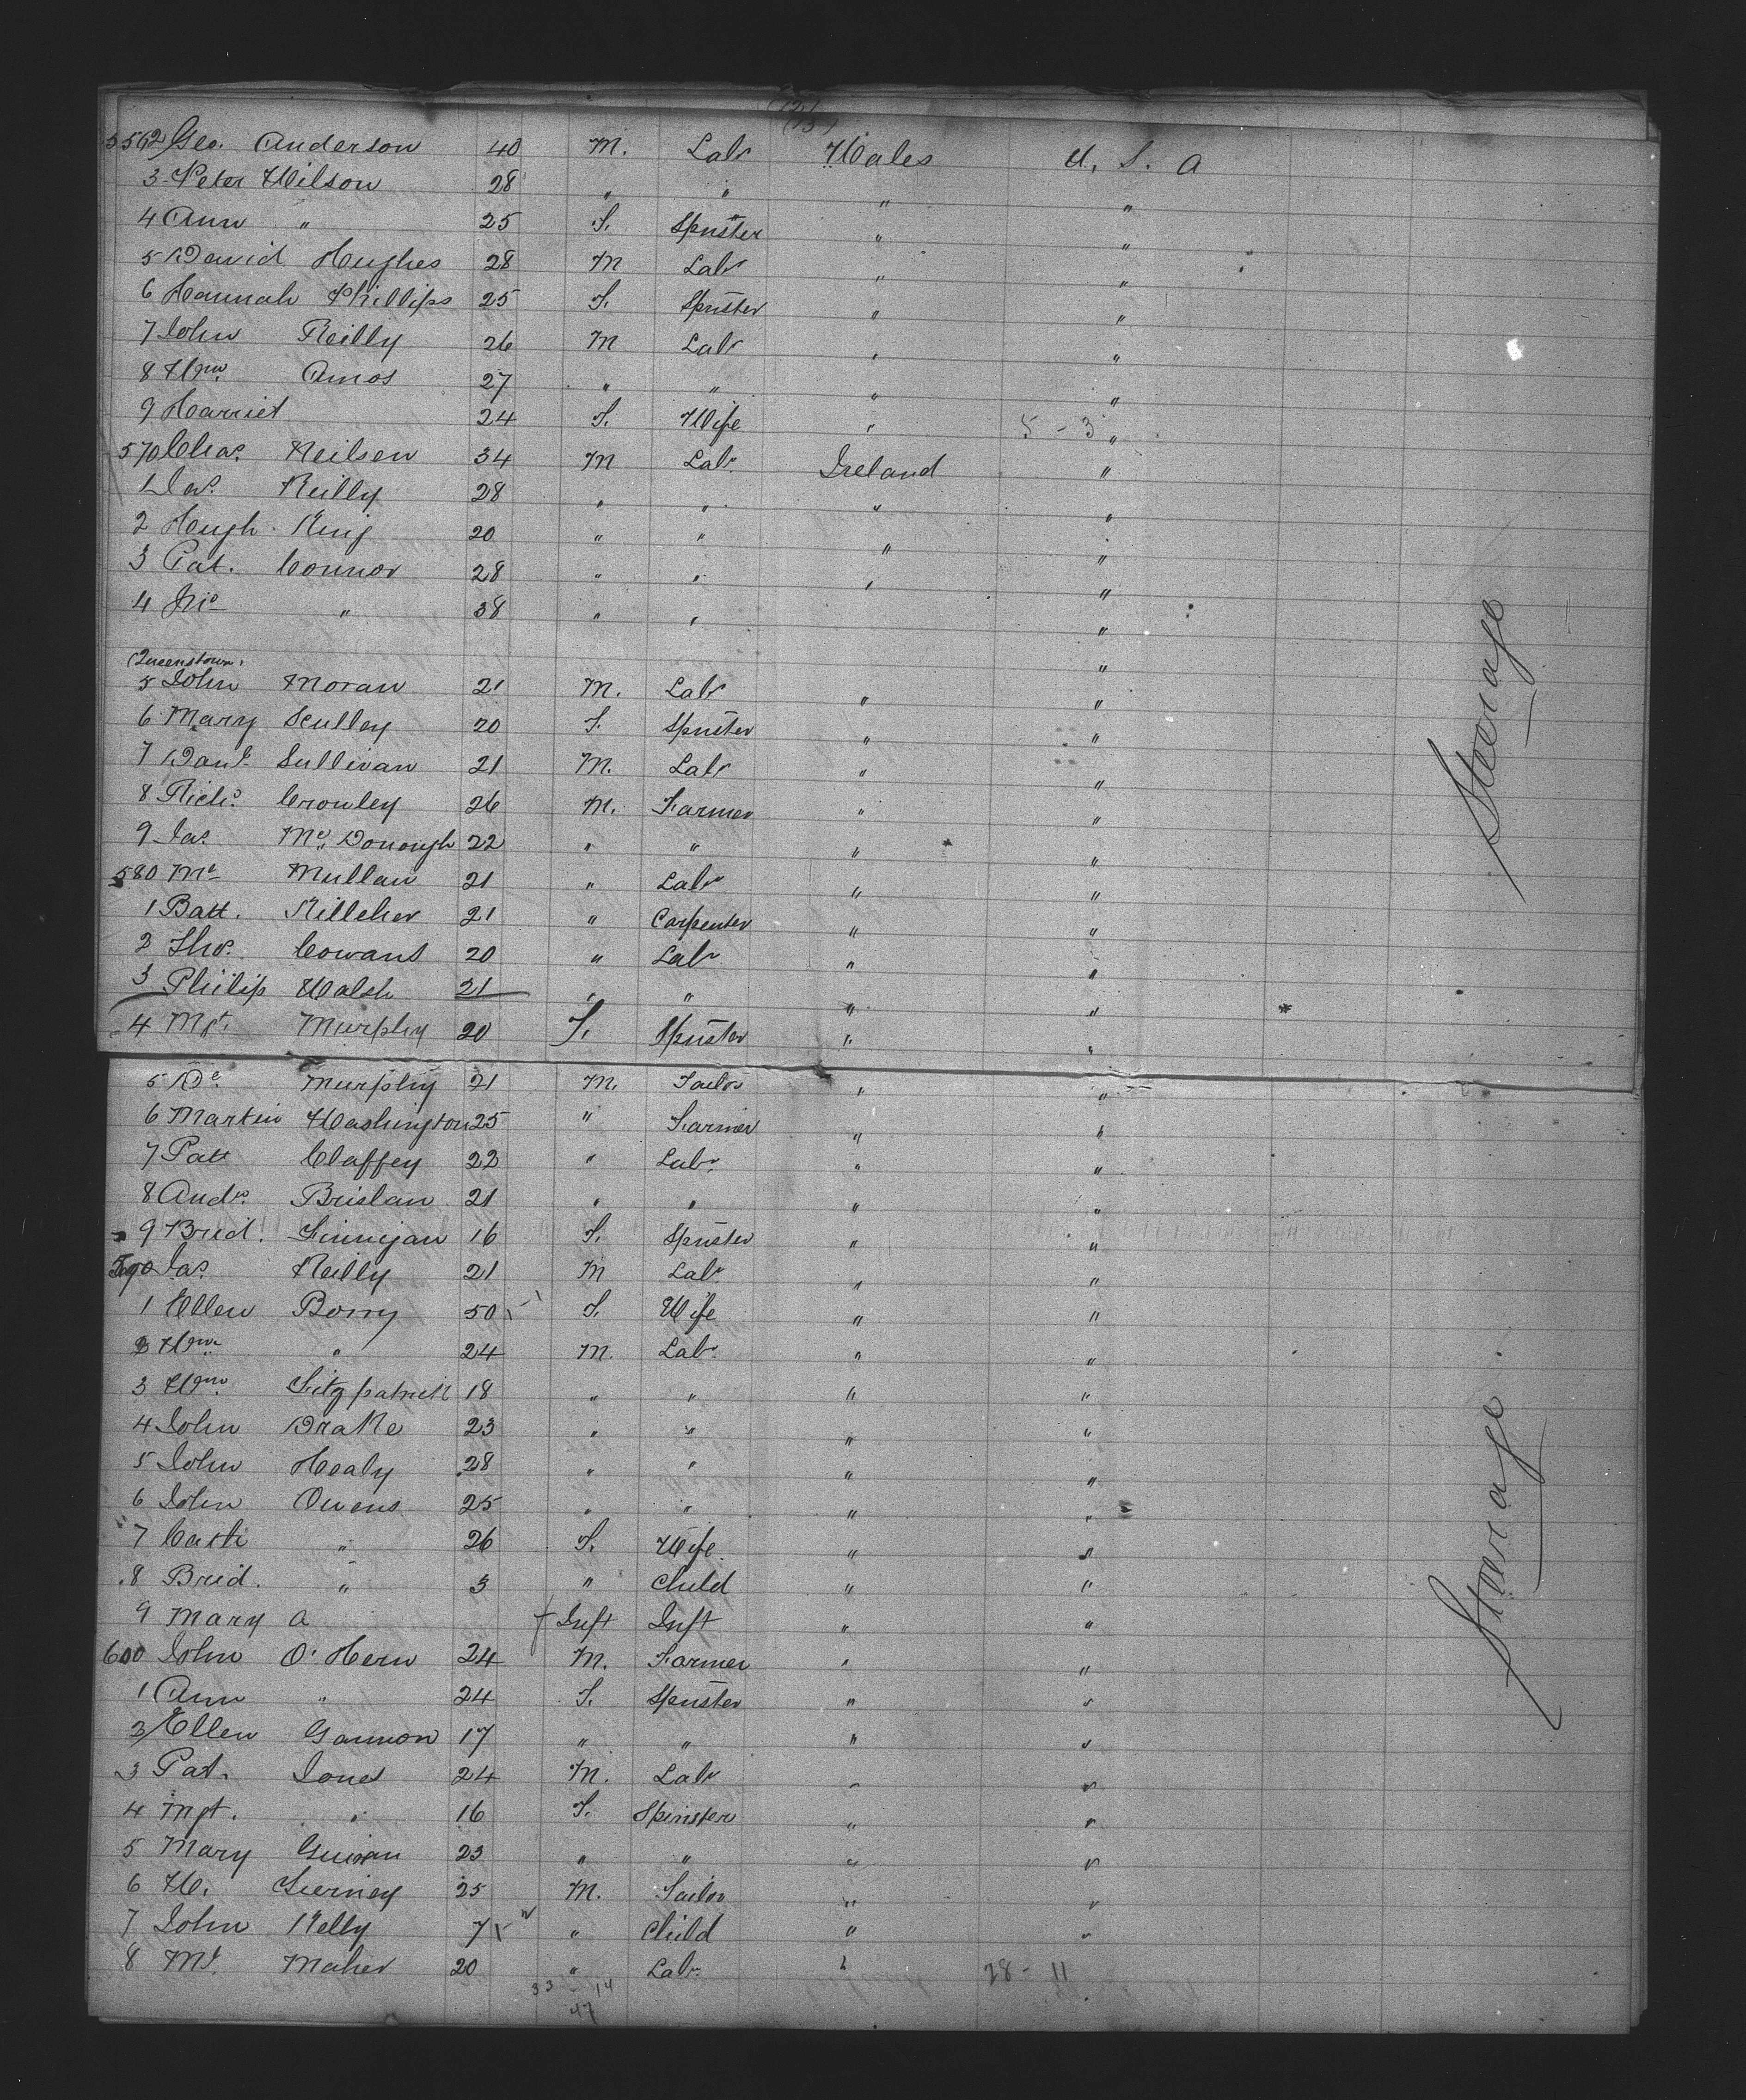 (13)
5562 Geo. Anderson 40 M. Labr Wales U. S. A
3 Peter Wilson 28 " " " "
4 Ann " 25 F. Spinster " "
5 David Hughes 28 M Labr " "
6 Hannah Phillips 25 F. Spinster " "
7 John Reilly 26 M Labr " "
8 Wm. Amos 27 " " " "
9 Harriet 24 F. Wife " 5 - 3 "
570 Chas. Neilsen 34 M Labr Ireland "
1 Jas. Reilly 28 " " " "
2 Hugh King 20 " " " "
3 Pat. Connor 28 " " " "
4 Jno " 38 " " "
(Queenstown) "
5 John Moran 21 M. Labr " "
6 Mary Sculley 20 F. Spinster " "
7 Danl. Sullivan 21 M. Labr " "
8 Richd. Crowley 26 M. Farmer " "
9 Jas. Mc Donough 22 " " " "
580 Ml Mullan 21 " Labr " "
1 Batt. Killeher 21 " Carpenter " "
2 Thos. Cowans 20 " Labr " "
3 Philip Walsh 21 " " " "
4 Mgt. Murphy 20 F. Spinster " "
5 Murphy 21 M. Tailor " "
6 Martin Washington 25 " Farmer " "
7 Patt Claffey 22 " Labr. " "
8 Andw. Brislan 21 " " " "
9 Brid. Finnigan 16 F. Spinster " "
590 Jas. Reilly 21 M Labr. " "
1 Ellen Borry 50 F. Wife " "
2 Wm. " 24 M. Labr. " "
3 Wm. Fitzpatrick 18 " " " "
4 John Drake 23 " " " "
5 John Healy 28 " " " "
6 John Owens 25 " " " "
7 Cath " 26 F. Wife " "
8 Brid. " 3 " Child " "
9 Mary A Inft Inft " "
600 John O'Hern 24 M. Farmer " "
1 Ann " 24 F. Spinster " "
2 Ellen Gannon 17 " " " "
3 Pat. Jones 24 M. Labr " "
4 Mgt. " 16 F. Spinster " "
5 Mary 23 " " " "
6 W. Tierney 25 M. Tailor " "
7 John Kelly 7 " Child " "
8 Ml. Maher 20 " Labr. " 28 - 11
33 - 14
47
Steerage
Steerage